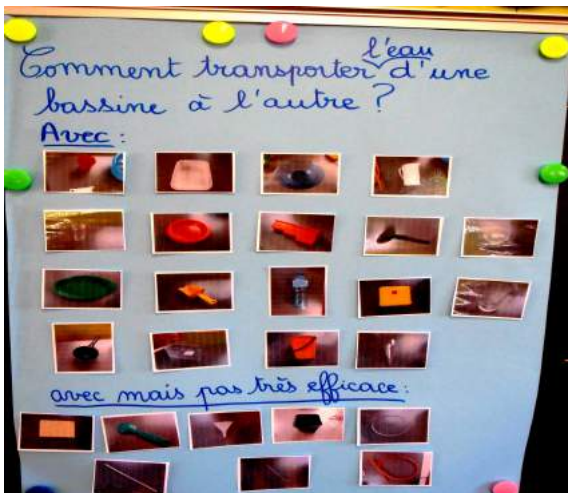 Comment transporter l'eau d'une
bassine à l'autre ?
Avec :
avec mais pas très efficace :